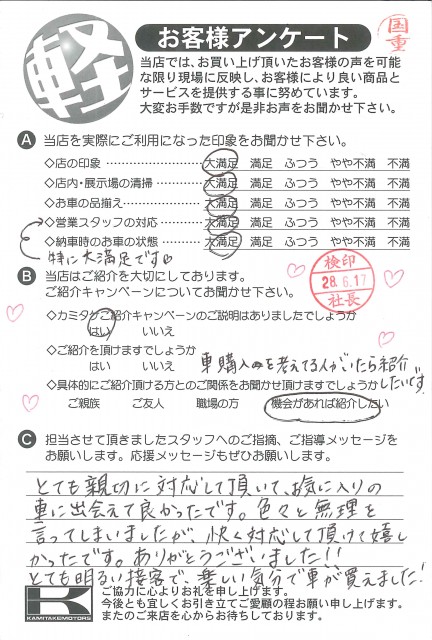 軽
お客様アンケート
国重
当店では、お買い上げ頂いたお客様の声を可能
な限り現場に反映し、お客様により良い商品と
サービスを提供する事に努めています。
大変お手数ですが是非お声をお聞かせ下さい。
A 当店を実際にご利用になった印象をお聞かせ下さい。
◇店の印象 ………………… 大満足 満足 ふつう やや不満 不満
◇店内・展示場の清掃 ……… 大満足 満足 ふつう やや不満 不満
◇お車の品揃え …………… 大満足 満足 ふつう やや不満 不満
◇営業スタッフの対応 ……… 大満足 満足 ふつう やや不満 不満
◇納車時のお車の状態 ……… 大満足 満足 ふつう やや不満 不満
特に大満足です
B 当店はご紹介を大切にしております。
ご紹介キャンペーンについてお聞かせ下さい。
検印
28.6.17
社長
◇カミタケご紹介キャンペーンのご説明はありましたでしょうか
はい いいえ
◇ご紹介を頂けますでしょうか
はい いいえ
車購入を考えてる人がいたら紹介
したいです
◇具体的にご紹介頂ける方とのご関係をお聞かせ頂けますでしょうか
ご親族 ご友人 職場の方 機会があれば紹介したい
C 担当させて頂きましたスタッフへのご指摘、ご指導メッセージを
お願いします。応援メッセージもぜひお願いします。
とても親切に対応して頂いて、お気に入りの
車に出会えて良かったです。色々と無理を
言ってしまいましたが、快く対応して頂けて嬉し
かったです。ありがとうございました!!
とても明るい接客で、楽しい気分で車が買えました!
ご協力に心よりお礼を申し上げます。
今後とも宜しくお引き立てご愛顧の程お願い申し上げます。
またのご来店を心からお待ちしております。
KAMITAKEMOTORS